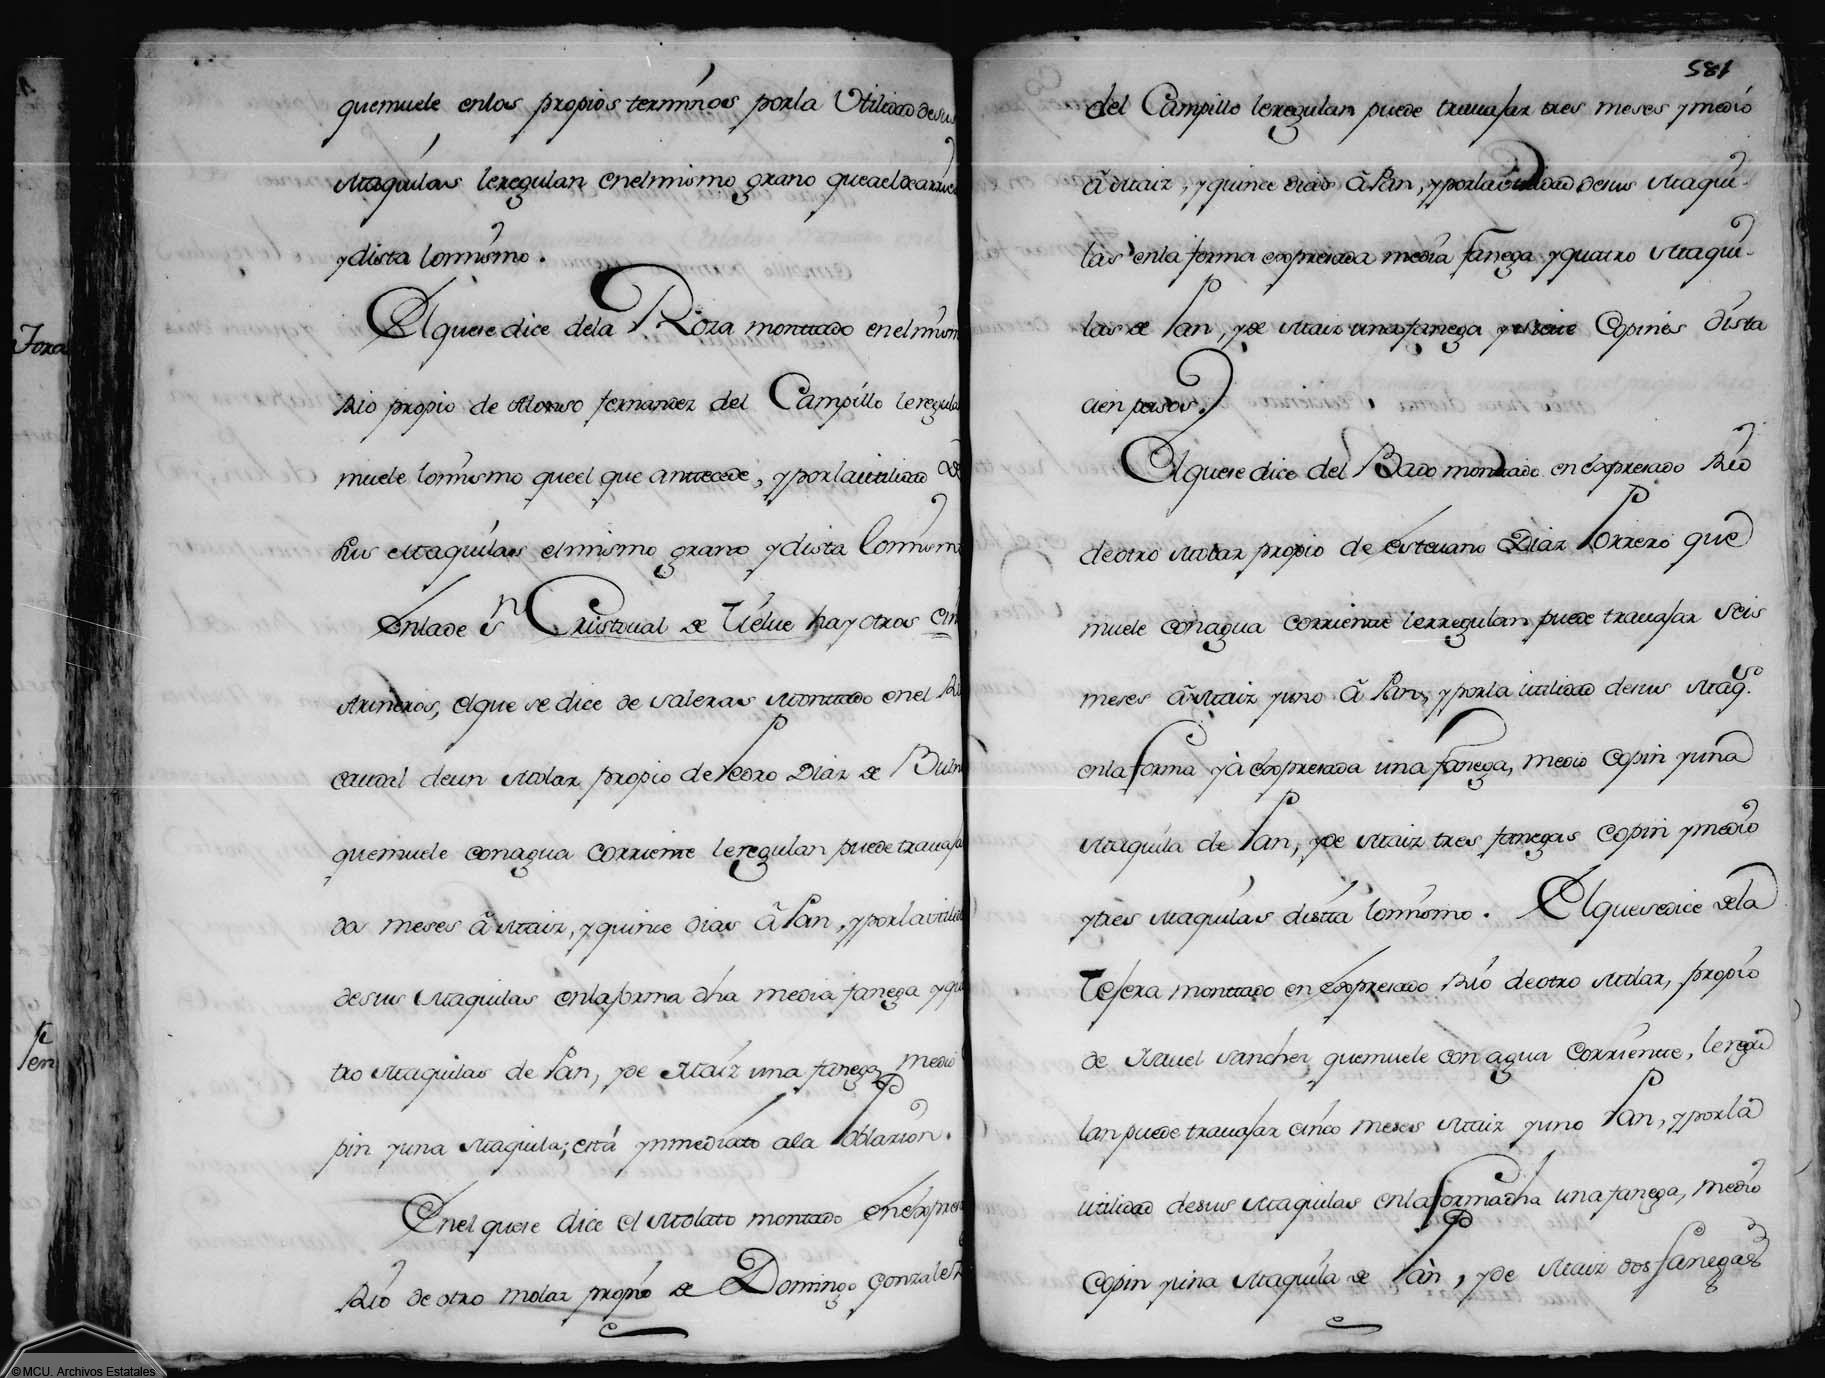 quemuele enlos propios terminos porla Utilidad desus
Maquilas leregulan enelmismo grano queaeldearriva
ydista lomismo.
Elquesedice dela Roza monttado enelmism
Rio propio de Alonso fernandez del Campillo leregula
muele lomismo queel que anttecede, yporlautilidad de
sus Maquilas elmismo grano ydista lomismo
Enlade Sn Cristoual de Tielue hayotros Cin
Arineros, elque se dice de saleras Monttado enel Ri
caudal deun Molar propio dePedro Diaz de Buln
quemuele conagua corriente leregulan puedetrauaja
dos meses â Maiz, yquince dias â Pan, yporlautili
desus Maquilas enlaforma dha media fanega yqu
tro Maquilas de Pan, yde Maiz una fanega, medio
pin yuna Maquila; está ynmediato ala Poblazion.
Enel quese dice el Molato montado enexpres
Rio de otro molar propio de Domingo Gonzalez
581
del Campillo leregulan puede trauajar tres meses ymedio
â Maiz, yquince dias â Pan, yporlautilidad desus Maqui-
las enla forma expresada media fanega yquatro Maqui-
las de Pan, yde Maiz unafanega ysiete Copines dista
cien pasos.
Elquesedice del Bado monttado en expresado Rio
deotro Molar propio de esteuano Diaz Porrero que
muele conagua corriente lerregulan puede trauajar seis
meses â Maiz yuno â Pan, yporla utilidad desus Maqs.
enlaforma yà expresada una fanega, medio copin yuna
Maquila de Pan, yde Maiz tres fanegas copin ymedio
ytres Maquilas distta lomismo. Elquesedice dela
Tejera monttado en expresado Rio deotro Molar, propio
de Manuel Sanchez quemuele con agua corriente, leregu
lan puede trauajar cinco meses Maiz yuno Pan, yporla
utilidad desus Maquilas enlaformadha una fanega, medio
copin yuna Maquila de Pàn, yde Maiz dos fanegas
Toxa
Pen
©MCU. Archivos Estatales